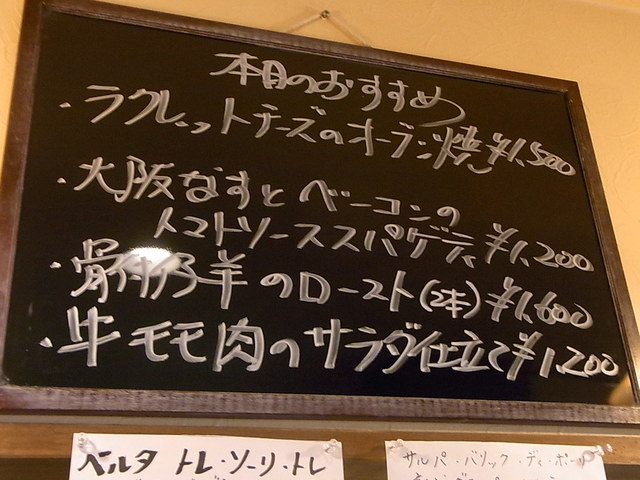 本日のおすすめ
・ラクレットチーズのオーブン焼 ¥1,500
・大阪なすとベーコンの
トマトソーススパゲティ ¥1,200
・骨付仔羊のロースト(2本) ¥1,600
・牛モモ肉のサラダ仕立て ¥1,200
ベルタ トレ・ソーリ・トレ
サルパ・バリック・ディ・ボーリ